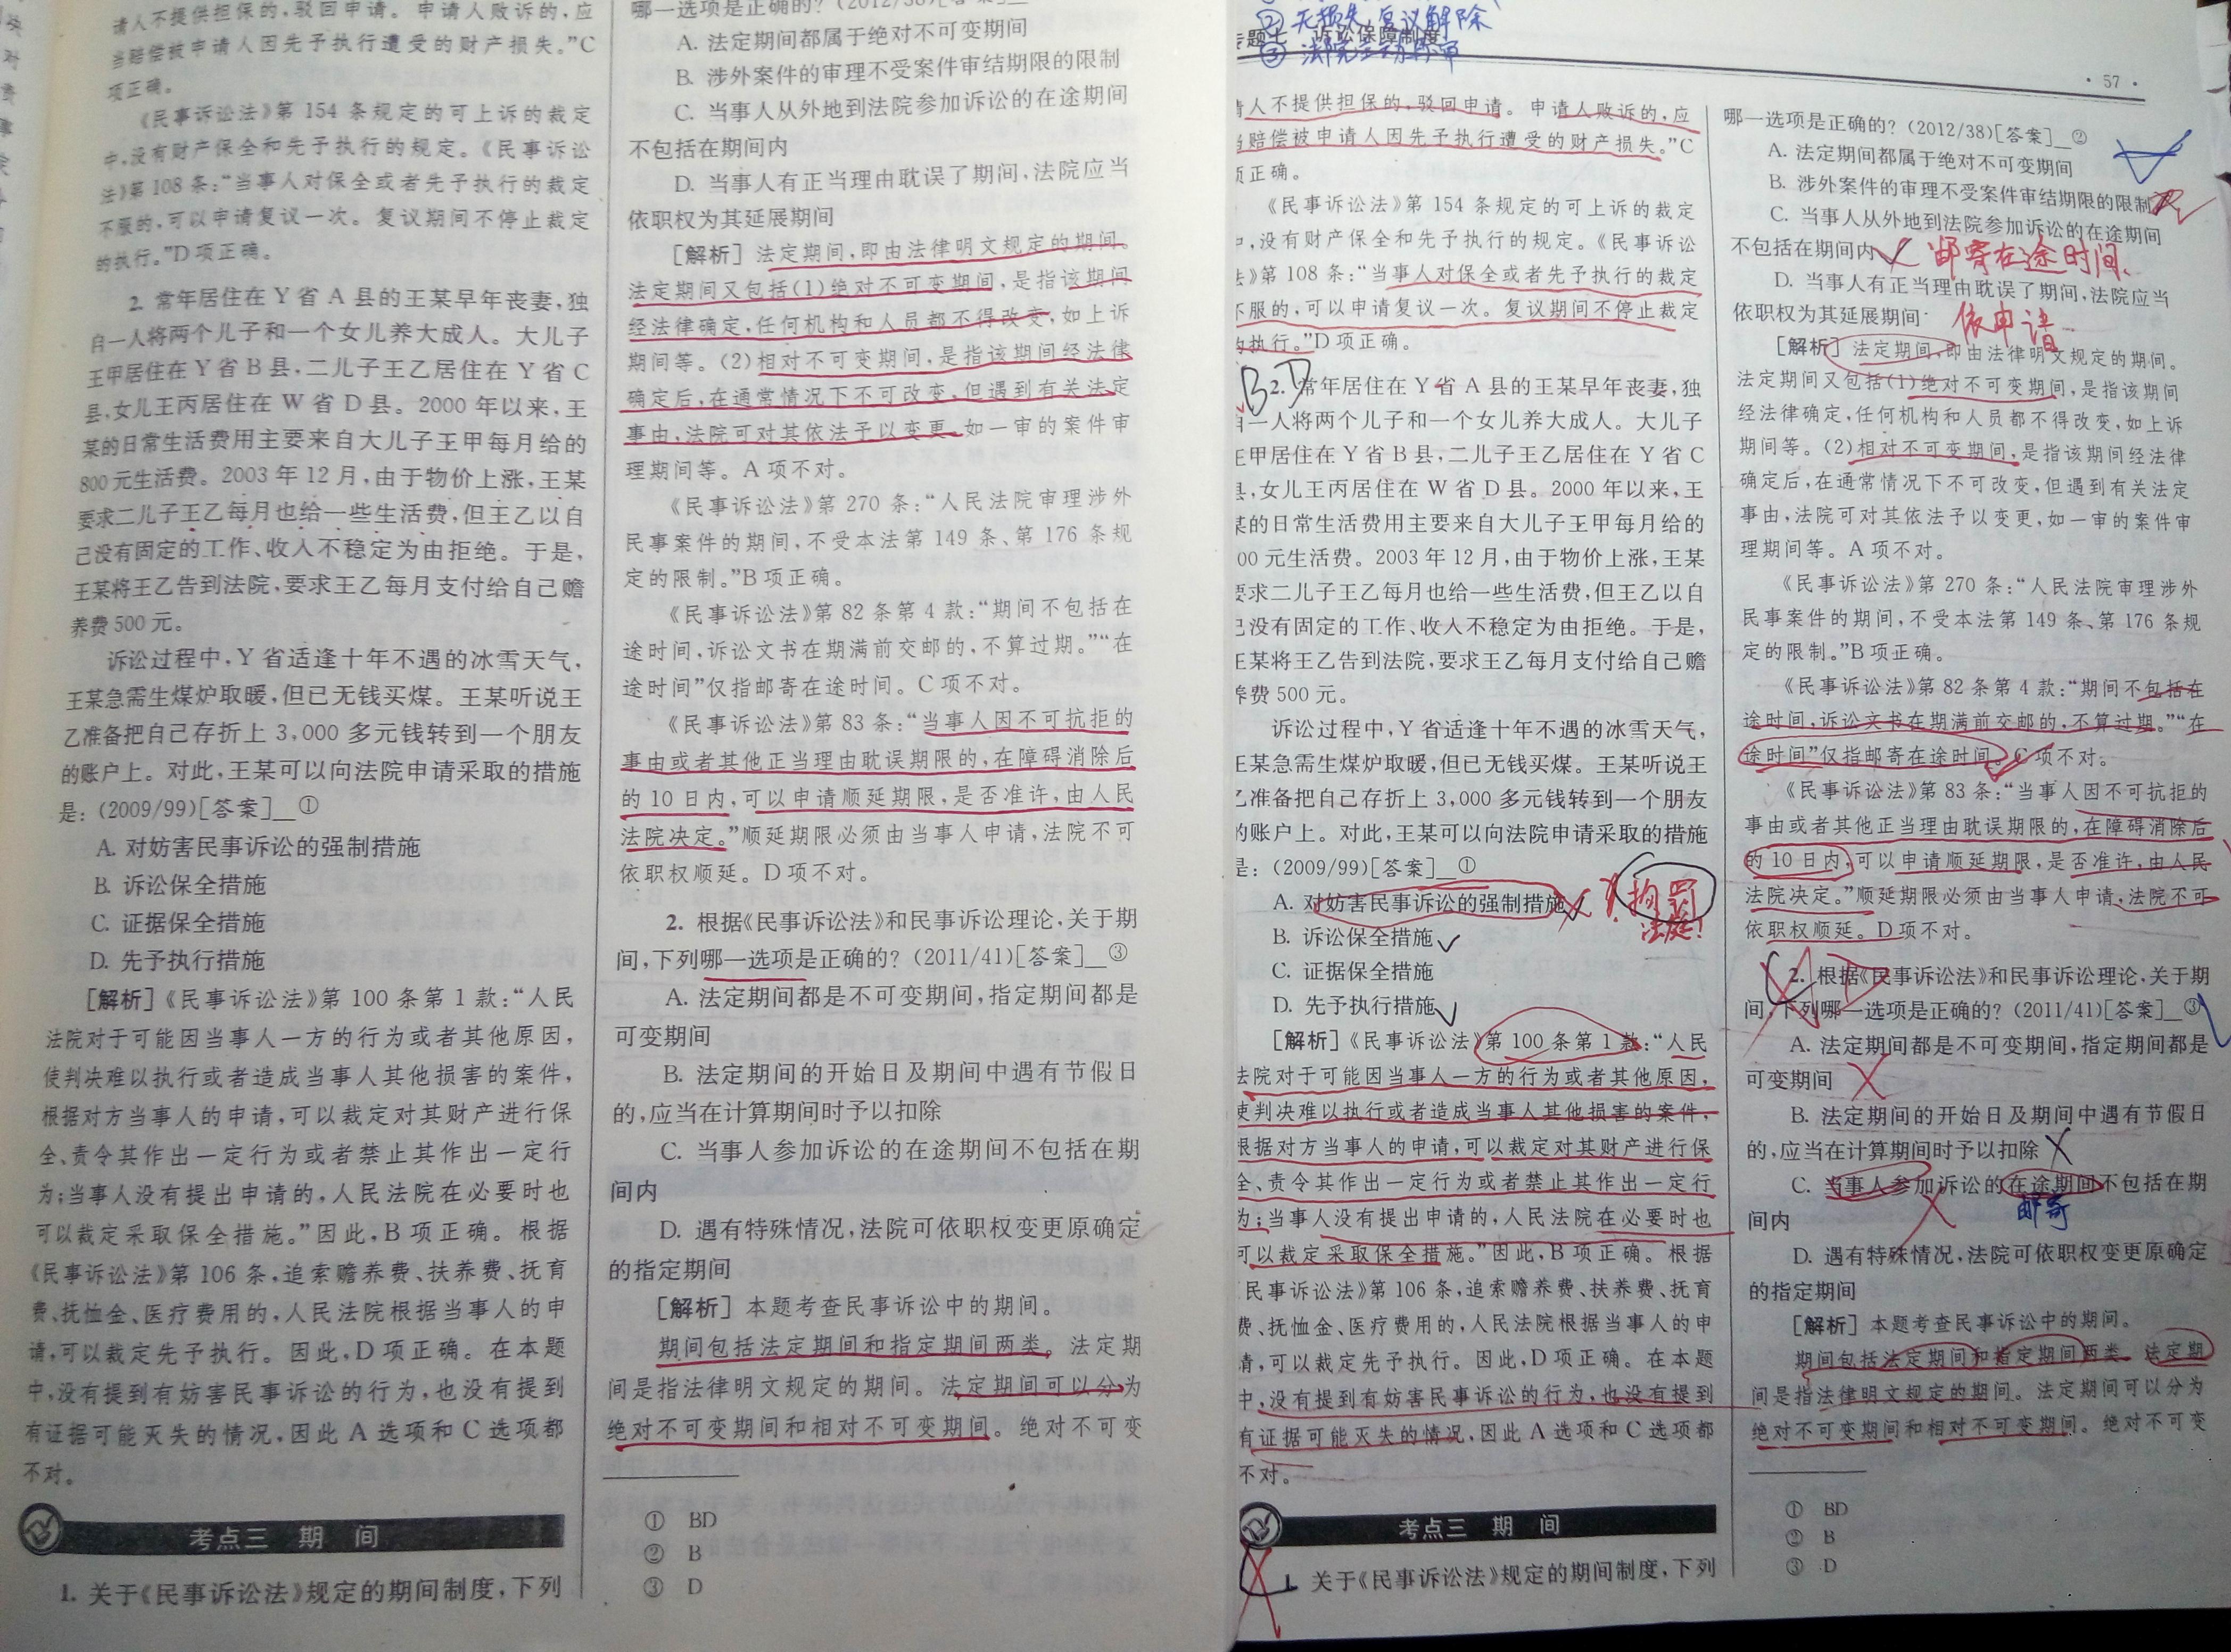 请人不提供担保的,驳回申请。申请人败诉的,应
当赔偿被申请人因先予执行遭受的财产损失。”C
项正确。
《民事诉讼法》第 154 条规定的可上诉的裁定
中,没有财产保全和先予执行的规定。《民事诉讼
法》第 108 条:“当事人对保全或者先予执行的裁定
不服的,可以申请复议一次。复议期间不停止裁定
的执行。”D 项正确。
2. 常年居住在 Y 省 A 县的王某早年丧妻,独
自一人将两个儿子和一个女儿养大成人。大儿子
王甲居住在 Y 省 B 县,二儿子王乙居住在 Y 省 C
县,女儿王丙居住在 W 省 D 县。2000 年以来,王
某的日常生活费用主要来自大儿子王甲每月给的
800 元生活费。2003 年 12 月,由于物价上涨,王某
要求二儿子王乙每月也给一些生活费,但王乙以自
己没有固定的工作、收入不稳定为由拒绝。于是,
王某将王乙告到法院,要求王乙每月支付给自己赡
养费 500 元。
诉讼过程中,Y 省适逢十年不遇的冰雪天气,
王某急需生煤炉取暖,但已无钱买煤。王某听说王
乙准备把自己存折上 3,000 多元钱转到一个朋友
的账户上。对此,王某可以向法院申请采取的措施
是: (2009/99)[答案]__①
A. 对妨害民事诉讼的强制措施
B. 诉讼保全措施
C. 证据保全措施
D. 先予执行措施
[解析]《民事诉讼法》第 100 条第 1 款:“人民
法院对于可能因当事人一方的行为或者其他原因,
使判决难以执行或者造成当事人其他损害的案件,
根据对方当事人的申请,可以裁定对其财产进行保
全、责令其作出一定行为或者禁止其作出一定行
为;当事人没有提出申请的,人民法院在必要时也
可以裁定采取保全措施。”因此,B 项正确。根据
《民事诉讼法》第 106 条,追索赡养费、扶养费、抚育
费、抚恤金、医疗费用的,人民法院根据当事人的申
请,可以裁定先予执行。因此,D 项正确。在本题
中,没有提到有妨害民事诉讼的行为,也没有提到
有证据可能灭失的情况,因此 A 选项和 C 选项都
不对。
考点三 期 间
1. 关于《民事诉讼法》规定的期间制度,下列
哪一选项是正确的? (2012/38)[答案]__
A. 法定期间都属于绝对不可变期间
B. 涉外案件的审理不受案件审结期限的限制
C. 当事人从外地到法院参加诉讼的在途期间
不包括在期间内
D. 当事人有正当理由耽误了期间,法院应当
依职权为其延展期间
[解析] 法定期间,即由法律明文规定的期间。
法定期间又包括(1)绝对不可变期间,是指该期间
经法律确定,任何机构和人员都不得改变,如上诉
期间等。(2)相对不可变期间,是指该期间经法律
确定后,在通常情况下不可改变,但遇到有关法定
事由,法院可对其依法予以变更,如一审的案件审
理期间等。A 项不对。
《民事诉讼法》第 270 条:“人民法院审理涉外
民事案件的期间,不受本法第 149 条、第 176 条规
定的限制。”B 项正确。
《民事诉讼法》第 82 条第 4 款:“期间不包括在
途时间,诉讼文书在期满前交邮的,不算过期。”“在
途时间”仅指邮寄在途时间。C 项不对。
《民事诉讼法》第 83 条:“当事人因不可抗拒的
事由或者其他正当理由耽误期限的,在障碍消除后
的 10 日内,可以申请顺延期限,是否准许,由人民
法院决定。”顺延期限必须由当事人申请,法院不可
依职权顺延。D 项不对。
2. 根据《民事诉讼法》和民事诉讼理论,关于期
间,下列哪一选项是正确的? (2011/41)[答案]__③
A. 法定期间都是不可变期间,指定期间都是
可变期间
B. 法定期间的开始日及期间中遇有节假日
的,应当在计算期间时予以扣除
C. 当事人参加诉讼的在途期间不包括在期
间内
D. 遇有特殊情况,法院可依职权变更原确定
的指定期间
[解析] 本题考查民事诉讼中的期间。
期间包括法定期间和指定期间两类。法定期
间是指法律明文规定的期间。法定期间可以分为
绝对不可变期间和相对不可变期间。绝对不可变
① BD
② B
③ D
② 无损失,复议解除
专题七 诉讼保障制度
· 57 ·
请人不提供担保的,驳回申请。申请人败诉的,应
当赔偿被申请人因先予执行遭受的财产损失。”C
项正确。
《民事诉讼法》第 154 条规定的可上诉的裁定
中,没有财产保全和先予执行的规定。《民事诉讼
法》第 108 条:“当事人对保全或者先予执行的裁定
不服的,可以申请复议一次。复议期间不停止裁定
的执行。”D 项正确。
BD
2. 常年居住在 Y 省 A 县的王某早年丧妻,独
自一人将两个儿子和一个女儿养大成人。大儿子
王甲居住在 Y 省 B 县,二儿子王乙居住在 Y 省 C
县,女儿王丙居住在 W 省 D 县。2000 年以来,王
某的日常生活费用主要来自大儿子王甲每月给的
00 元生活费。2003 年 12 月,由于物价上涨,王某
要求二儿子王乙每月也给一些生活费,但王乙以自
己没有固定的工作、收入不稳定为由拒绝。于是,
王某将王乙告到法院,要求王乙每月支付给自己赡
养费 500 元。
诉讼过程中,Y 省适逢十年不遇的冰雪天气,
王某急需生煤炉取暖,但已无钱买煤。王某听说王
乙准备把自己存折上 3,000 多元钱转到一个朋友
的账户上。对此,王某可以向法院申请采取的措施
是: (2009/99)[答案]__①
A. 对妨害民事诉讼的强制措施
拘 罚
法庭!
B. 诉讼保全措施
C. 证据保全措施
D. 先予执行措施
[解析]《民事诉讼法》第 100 条第 1 款:“人民
法院对于可能因当事人一方的行为或者其他原因,
使判决难以执行或者造成当事人其他损害的案件,
根据对方当事人的申请,可以裁定对其财产进行保
全、责令其作出一定行为或者禁止其作出一定行
为;当事人没有提出申请的,人民法院在必要时也
可以裁定采取保全措施。”因此,B 项正确。根据
民事诉讼法》第 106 条,追索赡养费、扶养费、抚育
费、抚恤金、医疗费用的,人民法院根据当事人的申
请,可以裁定先予执行。因此,D 项正确。在本题
中,没有提到有妨害民事诉讼的行为,也没有提到
有证据可能灭失的情况,因此 A 选项和 C 选项都
不对。
考点三 期 间
1. 关于《民事诉讼法》规定的期间制度,下列
哪一选项是正确的? (2012/38)[答案]__②
A. 法定期间都属于绝对不可变期间
B. 涉外案件的审理不受案件审结期限的限制
C. 当事人从外地到法院参加诉讼的在途期间
不包括在期间内
邮寄在途时间、
D. 当事人有正当理由耽误了期间,法院应当
依职权为其延展期间
依申请
[解析] 法定期间,即由法律明文规定的期间。
法定期间又包括(1)绝对不可变期间,是指该期间
经法律确定,任何机构和人员都不得改变,如上诉
期间等。(2)相对不可变期间,是指该期间经法律
确定后,在通常情况下不可改变,但遇到有关法定
事由,法院可对其依法予以变更,如一审的案件审
理期间等。A 项不对。
《民事诉讼法》第 270 条:“人民法院审理涉外
民事案件的期间,不受本法第 149 条、第 176 条规
定的限制。”B 项正确。
《民事诉讼法》第 82 条第 4 款:“期间不包括在
途时间,诉讼文书在期满前交邮的,不算过期。”“在
途时间”仅指邮寄在途时间。C 项不对。
《民事诉讼法》第 83 条:“当事人因不可抗拒的
事由或者其他正当理由耽误期限的,在障碍消除后
的 10 日内,可以申请顺延期限,是否准许,由人民
法院决定。”顺延期限必须由当事人申请,法院不可
依职权顺延。D 项不对。
2. 根据《民事诉讼法》和民事诉讼理论,关于期
间,下列哪一选项是正确的? (2011/41)[答案]__③
A. 法定期间都是不可变期间,指定期间都是
可变期间
B. 法定期间的开始日及期间中遇有节假日
的,应当在计算期间时予以扣除
C. 当事人参加诉讼的在途期间不包括在期
邮寄
间内
D. 遇有特殊情况,法院可依职权变更原确定
的指定期间
[解析] 本题考查民事诉讼中的期间。
期间包括法定期间和指定期间两类。法定期
间是指法律明文规定的期间。法定期间可以分为
绝对不可变期间和相对不可变期间。绝对不可变
① BD
② B
③ D